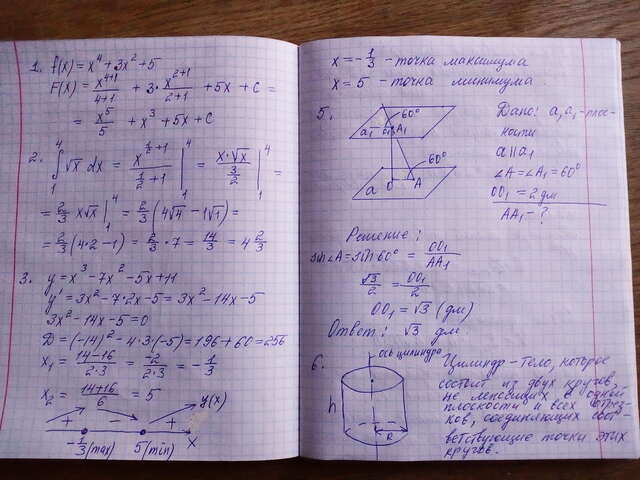 1. f(x) = x⁴ + 3x² + 5
F(x) = x⁴⁺¹/4+1 + 3·x²⁺¹/2+1 + 5x + C =
= x⁵/5 + x³ + 5x + C
2. ∫₁⁴ √x dx = x^(1/2+1)/(1/2+1) |₁⁴ = x·√x/(3/2) |₁⁴ =
= 2/3 x√x |₁⁴ = 2/3 (4√4 − 1√1) =
= 2/3 (4·2 − 1) = 2/3 · 7 = 14/3 = 4 2/3
3. y = x³ − 7x² − 5x + 11
y' = 3x² − 7·2x − 5 = 3x² − 14x − 5
3x² − 14x − 5 = 0
D = (−14)² − 4·3·(−5) = 196 + 60 = 256
x₁ = 14−16/2·3 = −2/2·3 = −1/3
x₂ = 14+16/6 = 5
+ − + y(x)
−1/3 (max) 5 (min) x
x = −1/3 - точка максимума
x = 5 - точка минимума
5.
60°
a₁ A₁
60°
a O A
Дано: a, a₁ - плос-
кости
a || a₁
∠A = ∠A₁ = 60°
OO₁ = 2 дм
AA₁ - ?
Решение:
sin∠A = sin 60° = OO₁/AA₁
√3/2 = OO₁/2
OO₁ = √3 (дм)
Ответ: √3 дм
6.
ось цилиндра
h
R
Цилиндр - тело, которое
состоит из двух кругов,
не лежащих в одной
плоскости и всех отрез-
ков, соединяющих соот-
ветствующие точки этих
кругов.